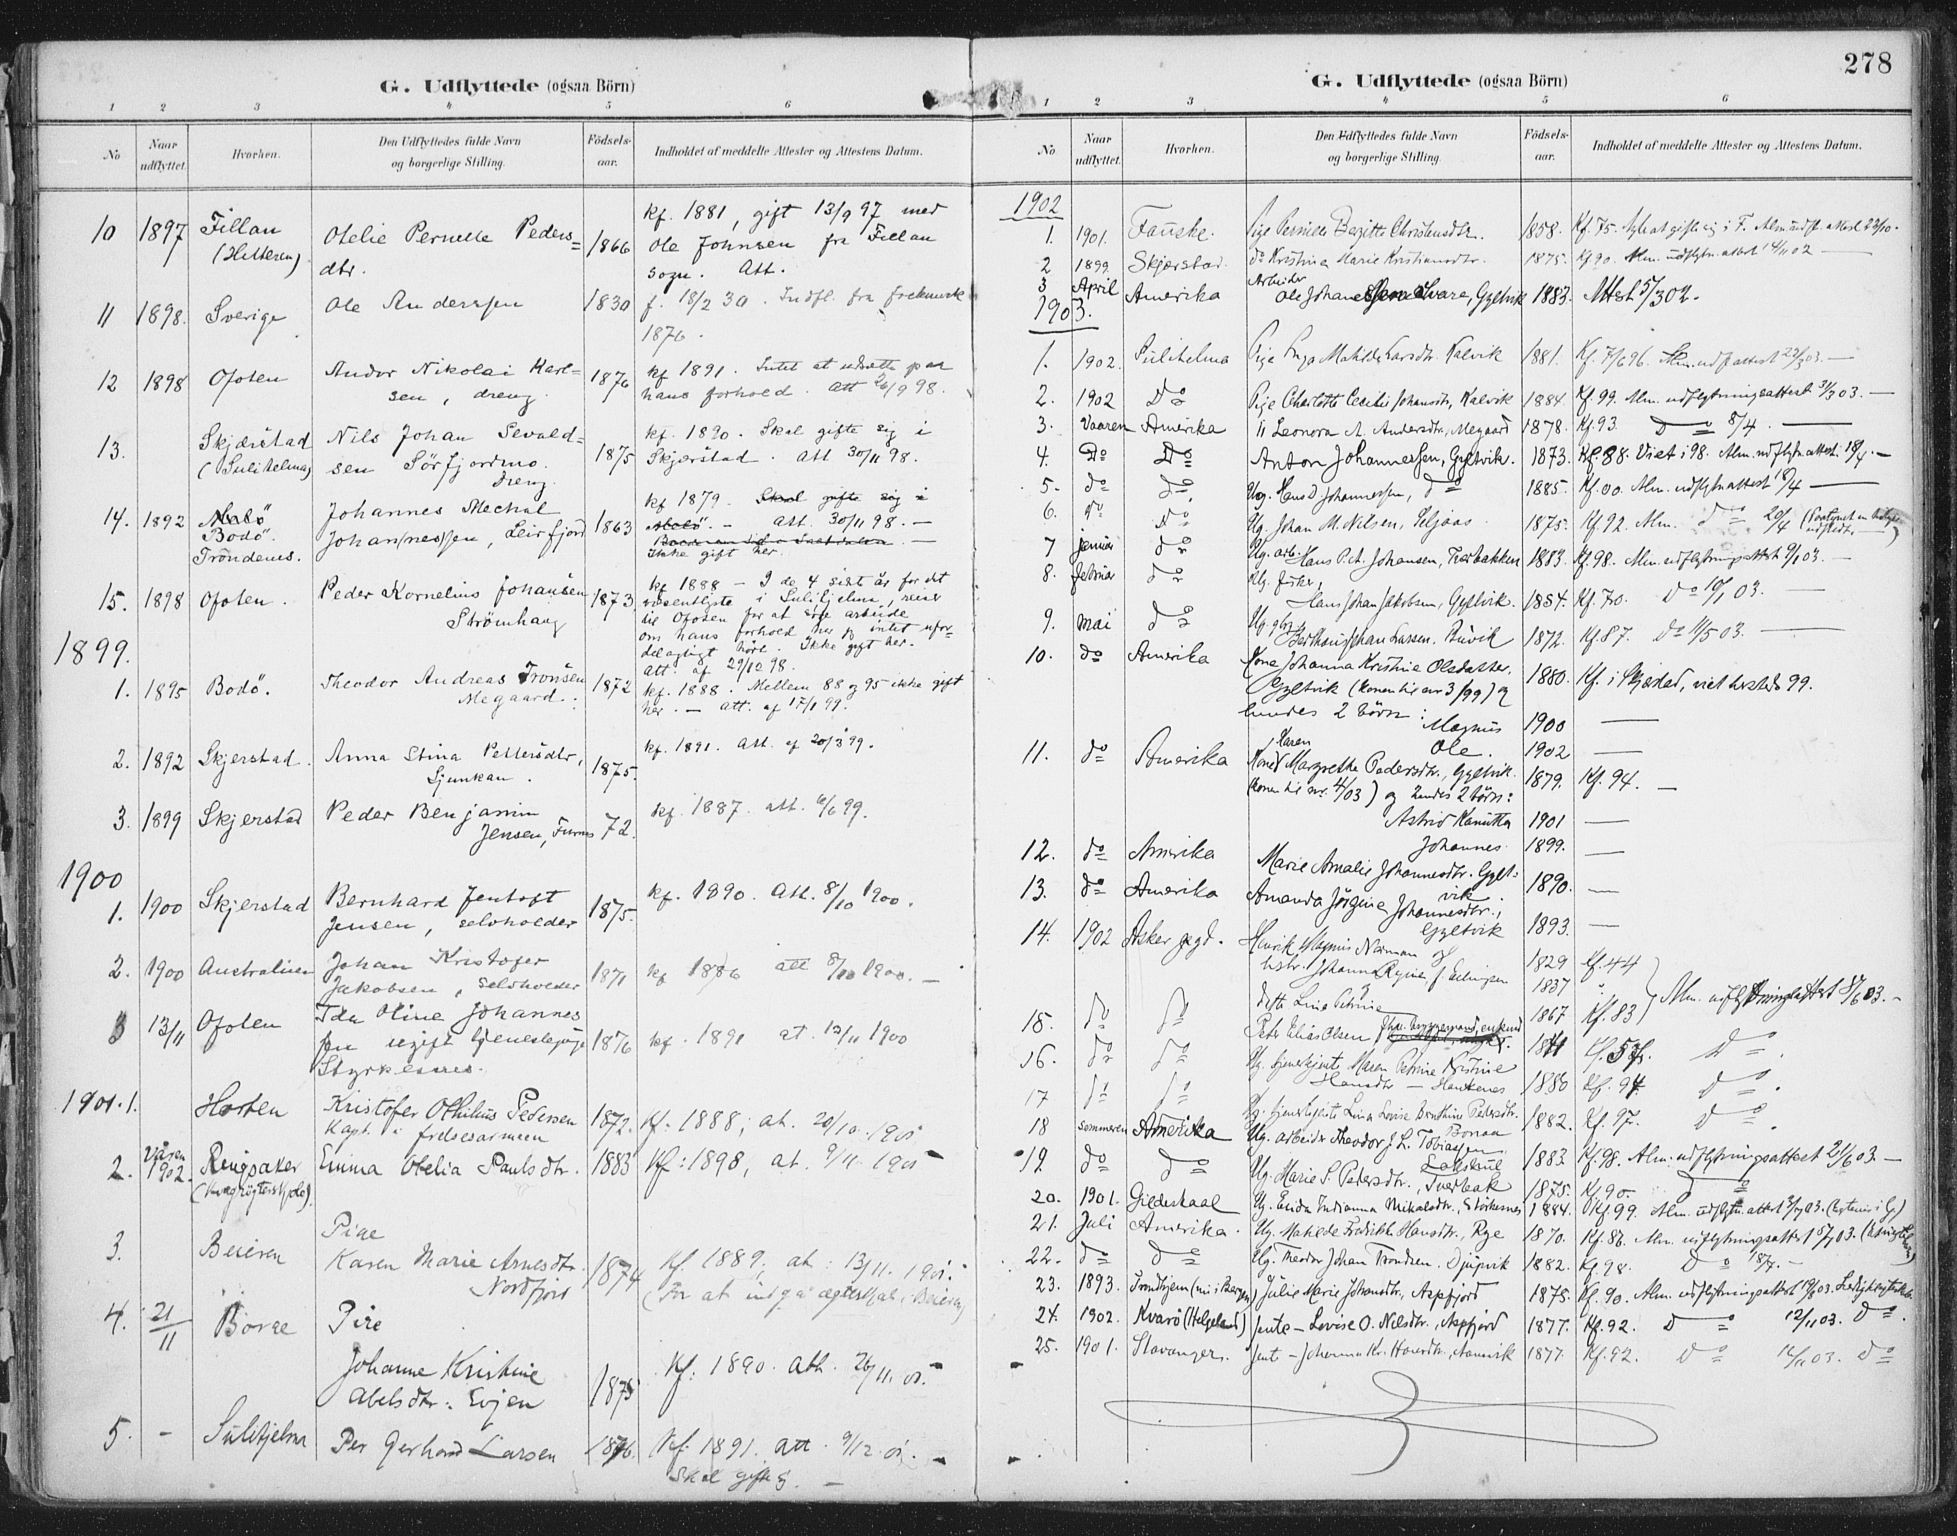 G. Udflyttede (ogsaa Börn)
1 2 3 4 5 6
No
Naar udflyttet.
Hvorhen.
Den Udflyttedes fulde Navn og borgerlige Stilling.
Födsels-aar.
Indholdet af meddelte Attester og Attestens Datum.
10 1897 Fillan Otelie Pernelle Peders= 1866 kf. 1881, gift 13/9 97 med
(Hitteren) dtr. Ole Johnsen fra Fillan
sogn. Att.
11 1898. Sverige Ole Anderssen 1830 f. 18/2 30. Indfl. fra
1876.
12 1898 Ofoten Andor Nikolai Karl= 1876 kf 1891. Intet at udsætte paa
sen, dreng. hans forhold. Att 26/9 98.
13. Skjærstad Nils Johan Sevald= 1875 kf. 1890. Skal gifte sig i
(Sulitelma) sen Sörfjordmo. Skjærstad. Att 30/11 98.
dreng.
14. 1892 Bodö. Johannes Mechal 1863 kf 1879. Skal gifte sig i
Trondenes. Johan(nes)sen, Leirfjord att. 30/11 98. —
Ikke gift her.
15. 1898 Ofoten. Peder Kornelius Johansen 1873 kf 1888 — I de 4 sidst år for det
Strömhaug væsentligste i Sulitjelma, reiser
til Ofoten for at söge arbeide
om hans forhold her er intet ufor-
delagtigt hört. Ikke gift her.
att. af 29/12 98.
1899.
1. 1895 Bodö. Theodor Andreas Tronsen 1872 kf. 1888. Mellem 88 og 95 ikke gift
Megaard. her. — att. af 17/1 99.
2. 1892 Skjerstad. Anna Stina Pettersdtr, 1875. kf. 1891. Att. af 20/3 99.
Sjunkan.
3. 1899 Skjerstad Peder Benjamin 72. kf. 1887. att. 6/6 99.
Jensen, Furnes
1900
1. 1900 Skjerstad Bernhard Jentoft 1875. kf. 1890. Att. 8/10 1900.
Jensen, selvholder
2. 1900 Australien Johan Kristofer 1871 kf 1886 att 8/10 1900. —
Jakobsen, selvholder
3 13/11 Ofoten Ida Oline Johannes 1876 kf. 1891 at. 13/11 1900
sen ugift tjenestepige
Styrkesnes.
1901. 1. Horten Kristofer Othilius Pedersen 1872. Kf. 1888; at. 20/10 1901
Kapt. i frelsesarmeen
2. Våren 1902. Ringsaker Emma Otelia Paulsdtr. 1883 Kf: 1898, at. 9/11 1901
3. Beieren Pige
Karen Marie Arnesdtr. 1874 Kf 1889; at: 13/11. 1901.
Nordfjord (For at indgå ægteskab i Beieren)
4. 21/11 Borge Pige
Johanne Kristine 1875 Kf: 1890. att. 26/11. 01.
Abelsdtr. Evjen
5. - Sulitjelma Per Gerhard Larsen 1876. Kf. 1891. att. 9/12 01. —
Skal gifte sig. —
278
G. Udflyttede (ogsaa Börn)
1 2 3 4 5 6
No
Naar udflyttet.
Hvorhen.
Den Udflyttedes fulde Navn og borgerlige Stilling.
Födsels-aar.
Indholdet af meddelte Attester og Attestens Datum.
1902
1. 1901. Fauske. Pige Pernille Birgitte Christensdtr. 1858. Kf. 75. gifte sig i F. Alm. udfl. attest 22/10.
2 1899 Skjerstad. do Kristina Marie Kristiansdtr. 1875. Kf 90. Alm. udflytn. attest 4/11 02 —
3 April Amerika Arbeider Ole Johan, Gyltvik 1883. Attest 5/3 02.
1903.
1. 1902. Sulitelma Pige Inga Mathilde Larsdtr. Kalvik 1881. Kf. 7/6 96. Alm. udf. attest 22/3 03. —
2. 1902 Do Pige Charlotte Cecilie Johansdtr, Kalvik 1884. Kf. 99. Alm. udflytningsattest 31/3 03. —
3. Vaaren Amerika " Leonora A. Andersdtr, Megaard 1878. Kf. 93 Do 8/4. —
4. Do Do Anton Johannessen, Gyltvik. 1873. Kf. 88. Viet i 98. Alm. udflytn. attest. 18/4. —
5. do do Ug. Hans D. Johannessen, do 1885. Kf. 00. Alm. udflytn. attest 18/4 —
6. do do Ug. Johan M. Nilsen, Seljaas 1875. Kf 92. Alm. do 20/4
7 januar do Ug. arb. Hans P. A. Johansen, Tverbakken 1883. Kf. 98. Alm. udflytnings attest 9/1 03. —
8. februar do Ug. fisker, Hans Johan Jakobsen, Gyltvik. 1854. Kf. 70. Do 10/1 03. —
9. mai do Ug. gbr. Berthaus Johan Larsen. 1872. Kf 87. Do 11/5 03. —
10. do Amerika Kone Johanna Kristine Olsdatter 1880. Kf. i Skjerstad, viet hersteds 99.
Gyltvik (konen til nr 3/99) og
hendes 2 börn: Magnus 1900 —
Ole. 1902 —
11. do Amerika Kone Karen Margrethe Pedersdtr., Gyltvik. 1879. Kf. 94. —
(konen til nr. 4/03) og hendes 2 börn:
Astrid Kanutta 1901 —
Johannes. 1899. —
12. do Amerika Marie Amalie Johannesdtr. Gylt= 1890. —
vik.
13. do Amerika Amanda Jörgine Johannesdtr., 1893. —
Gyltvik
14. 1902 Asker pgd. Henrik Magnus Norman og 1829 Kf. 44
hstr. Johanna Regine 1837 "
15. do do dett. Lina Petrine 1867 Kf. 83 Alm. udflytningsattest 03. —
Peder Elias Olsen 1841 Kf. 57. Do.
16. do do Ug. tjenestejente Maren Petrine Kristine 1880 Kf. 94. Do.
Hansdtr —
17 do do Ug. tjenestejente Lina Lovise Pedersdtr. 1882. Kf. 97. Do.
18 sommeren Amerika Ug. arbeider Theodor J. L. Tobiassen 1883. Kf. 98. Alm. udflytningsattest 21/6 03. —
19. do do Ug. Marie S. Pedersdtr., Tverbak 1875. Kf 90. Do
20. 1901. Gildeskaal Ug. Indianna Nikolaisdtr., Störkesnes 1884. Kf 99. Alm. udflytn. attest 13/7 03.
21. Juli Amerika. Ug. Mathilde Fredrikke Hansdtr., Rye 1870. Kf. 86. Alm. udflytningsattest 15/7 03.
22. do do Ug. Theodor Johan Trondsen. Djupvik 1882. Kf 98. Do 18/7. —
23. 1893. Trondhjem (nu i Bergen) Julie Marie Johansdtr., Aspfjord 1875. Kf. 90. Alm. udflytningsattest 03.
24. 1902. Kvarö (Helgeland) Jente — Lovise O. Nilsdtr., Aspfjord 1877. Kf. 92. Do 12/11 03. Do.
25. 1901. Stavanger. Jente — Johanna Kr. Hansdtr. 1877. Kf. 92. Do 12/11 03. Do